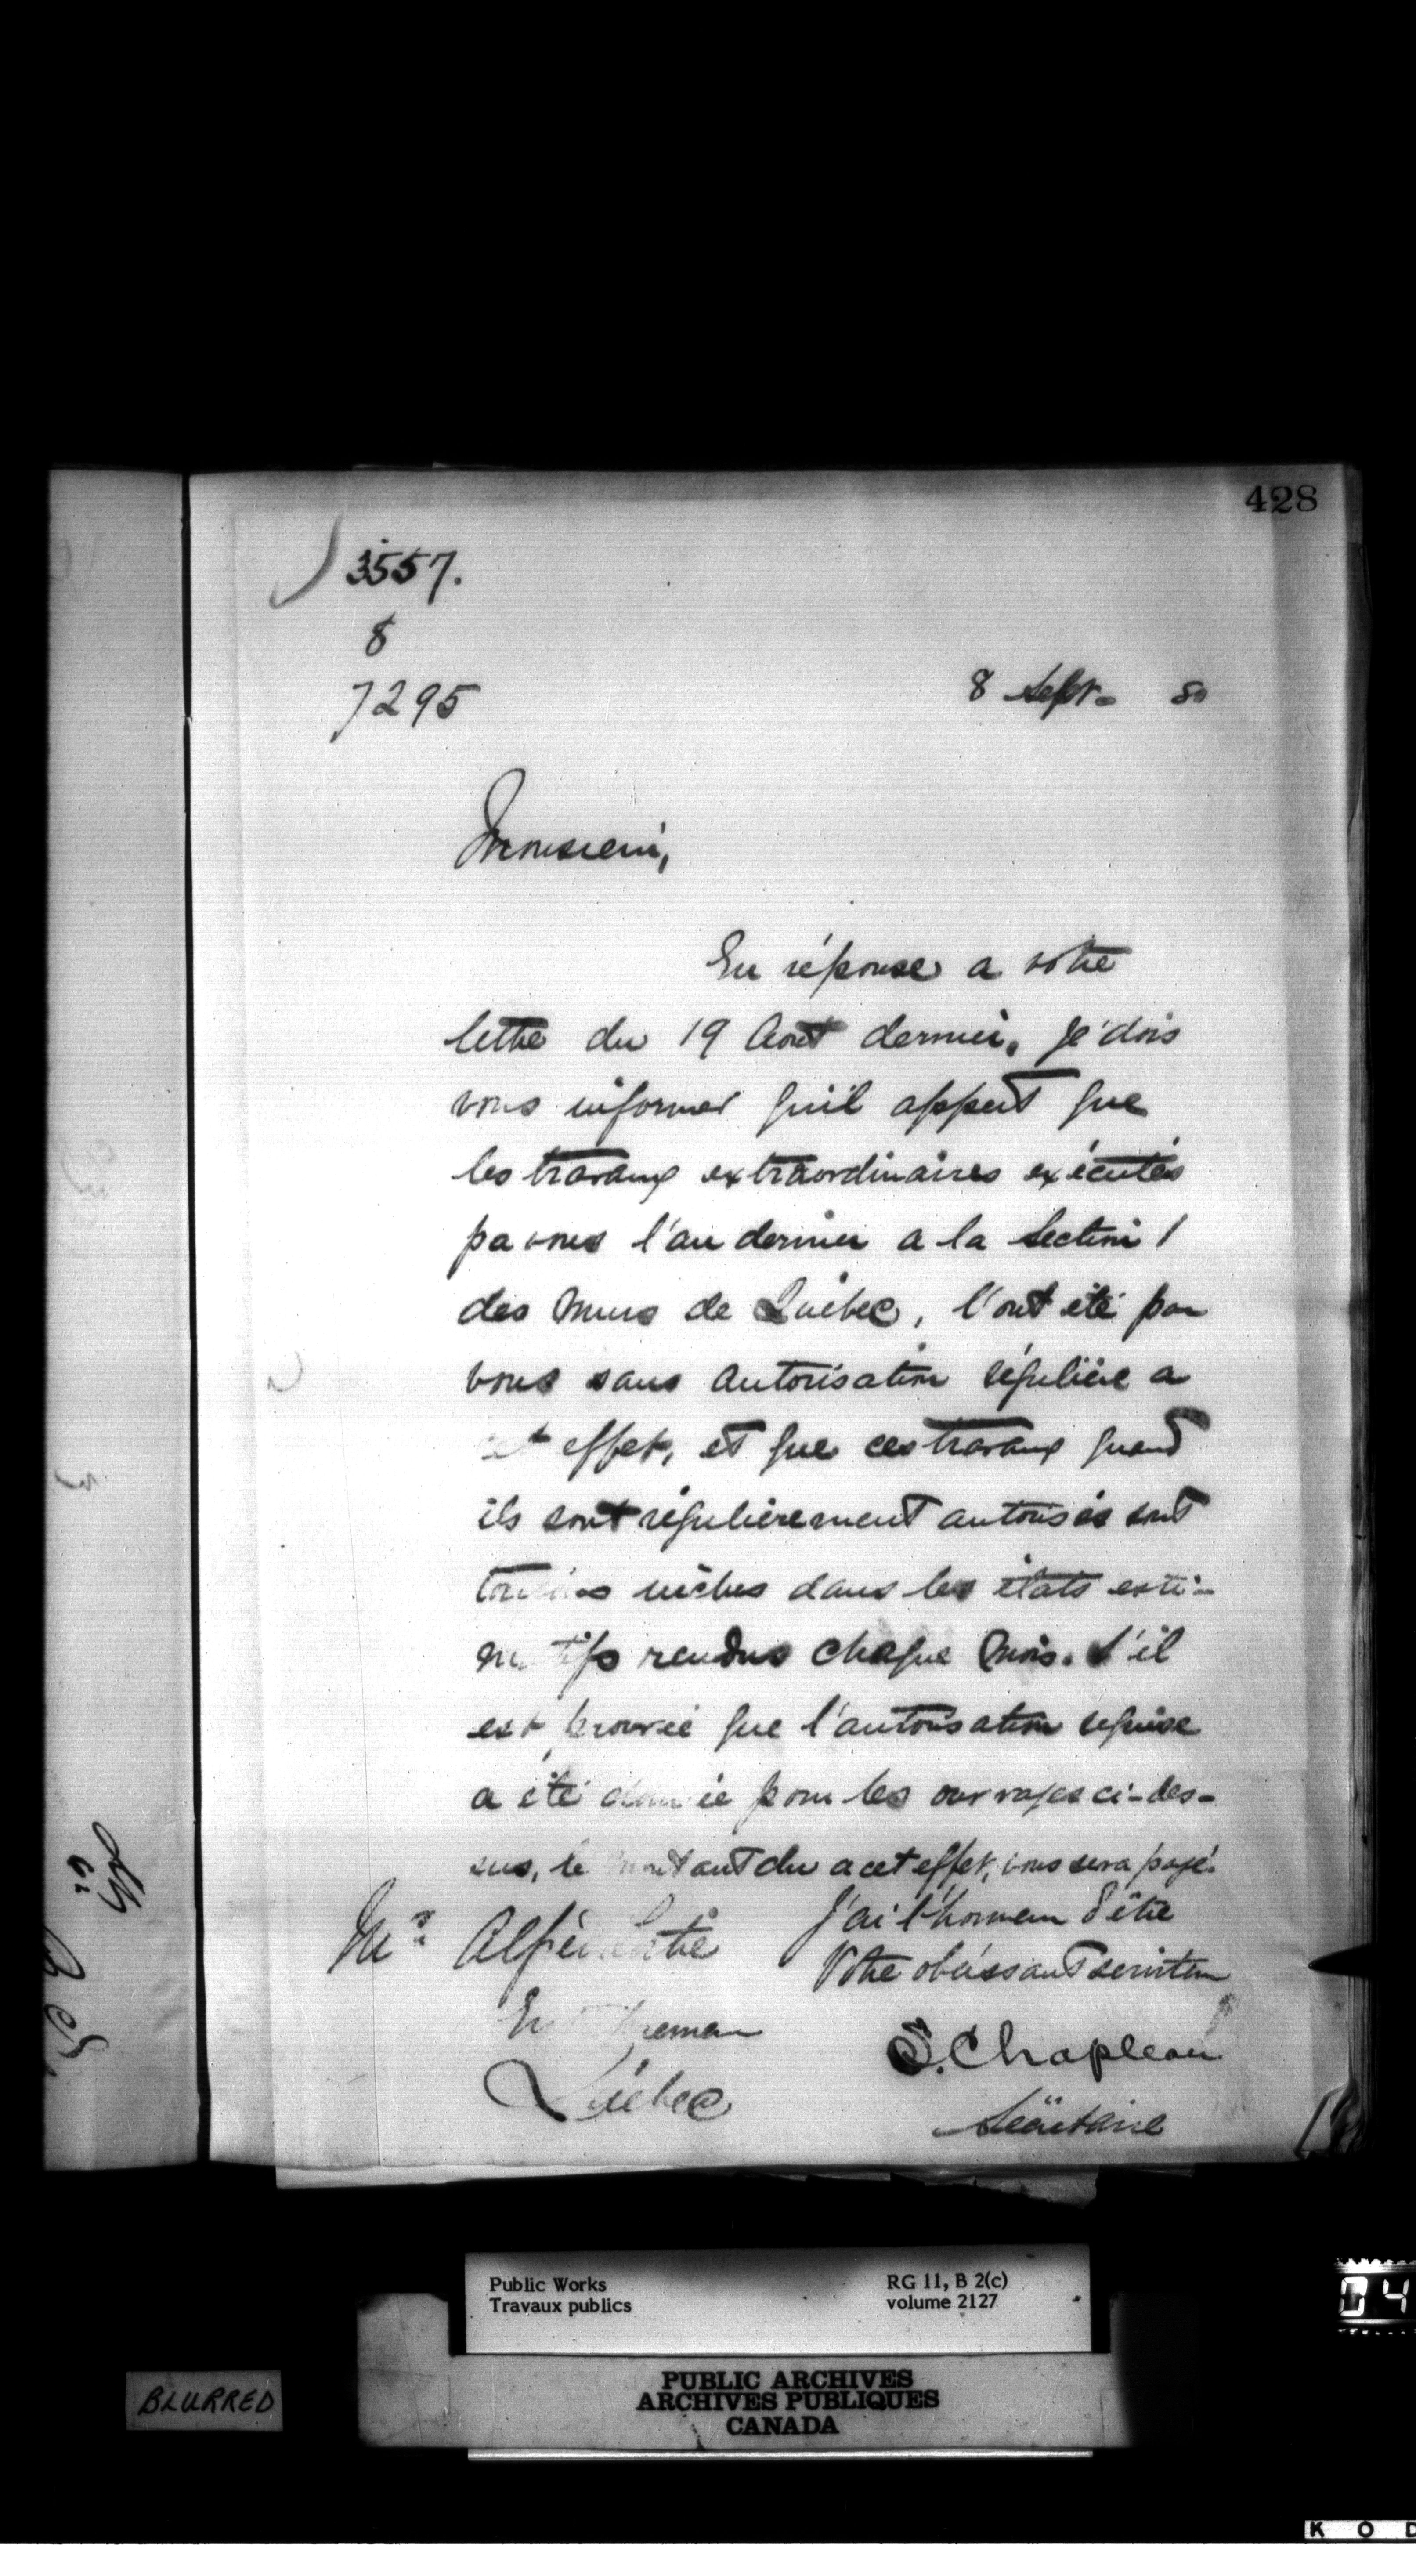 428
3557.
8
7295
8 Sept. 80
Monsieur,
En réponse a votre
lettre du 19 Aout dernier, je dois
vous informer qu'il appert que
les travaux extraordinaires exécutés
pa vous l'an dernier a la Section 1
des Murs de Québec, l'ont été par
vous sans autorisation régulière a
cet effet, et que ces travaux quand
ils sont régulièrement autorisés sont
toujours inclus dans les états esti-
matifs rendus chaque Mois. S'il
est prouvé que l'autorisation requise
a été donnée pour les ouvrages ci-des-
sus, le montant du a cet effet, vous sera payé.
J'ai l'honneur d'être
Votre obéissant serviteur
Mr Alfred
Entrepreneur
Québec
S. Chapleau
Secrétaire
Public Works
Travaux publics
RG 11, B 2(c)
volume 2127
PUBLIC ARCHIVES
ARCHIVES PUBLIQUES
CANADA
BLURRED
04
KOD